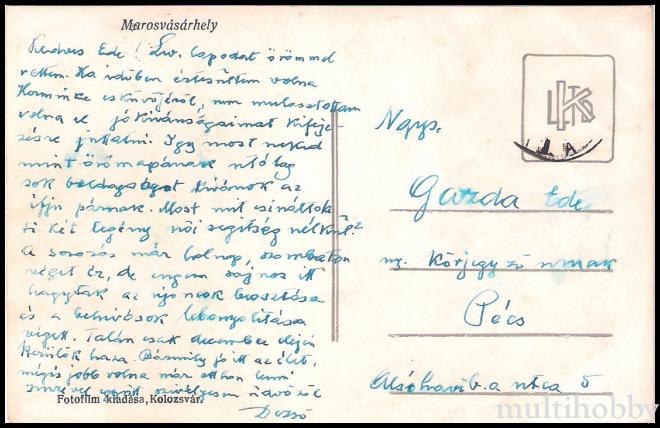 Marosvásárhely
Kedves Ede! Szv. lapodat örömmel
vettem. Ha időben értesültem volna
esküvőjéről, nem mulasztottam
volna el jókívánságaimat kifeje-
zésre juttatni. Így most neked
mint örömapának utólag
sok boldogságot kívánok az
ifjú párnak. Most mit csináltok
ti két legény női segítség nélkül?
A sorozás már holnap, szombaton
véget ér, de engem sajnos itt
hagytak az újoncok beosztása
és a behívások lebonyolítása
végett. Talán csak december elején
kerülök haza. Bármily jó itt az élet,
mégis jobb volna már otthon lenni
szívélyesen üdvözöl
Dezső
Fotofilm kiadása, Kolozsvár.
LKTS
Nags.
Gazda Ede
ny. körjegyző úrnak
Pécs
utca 5
multihobby